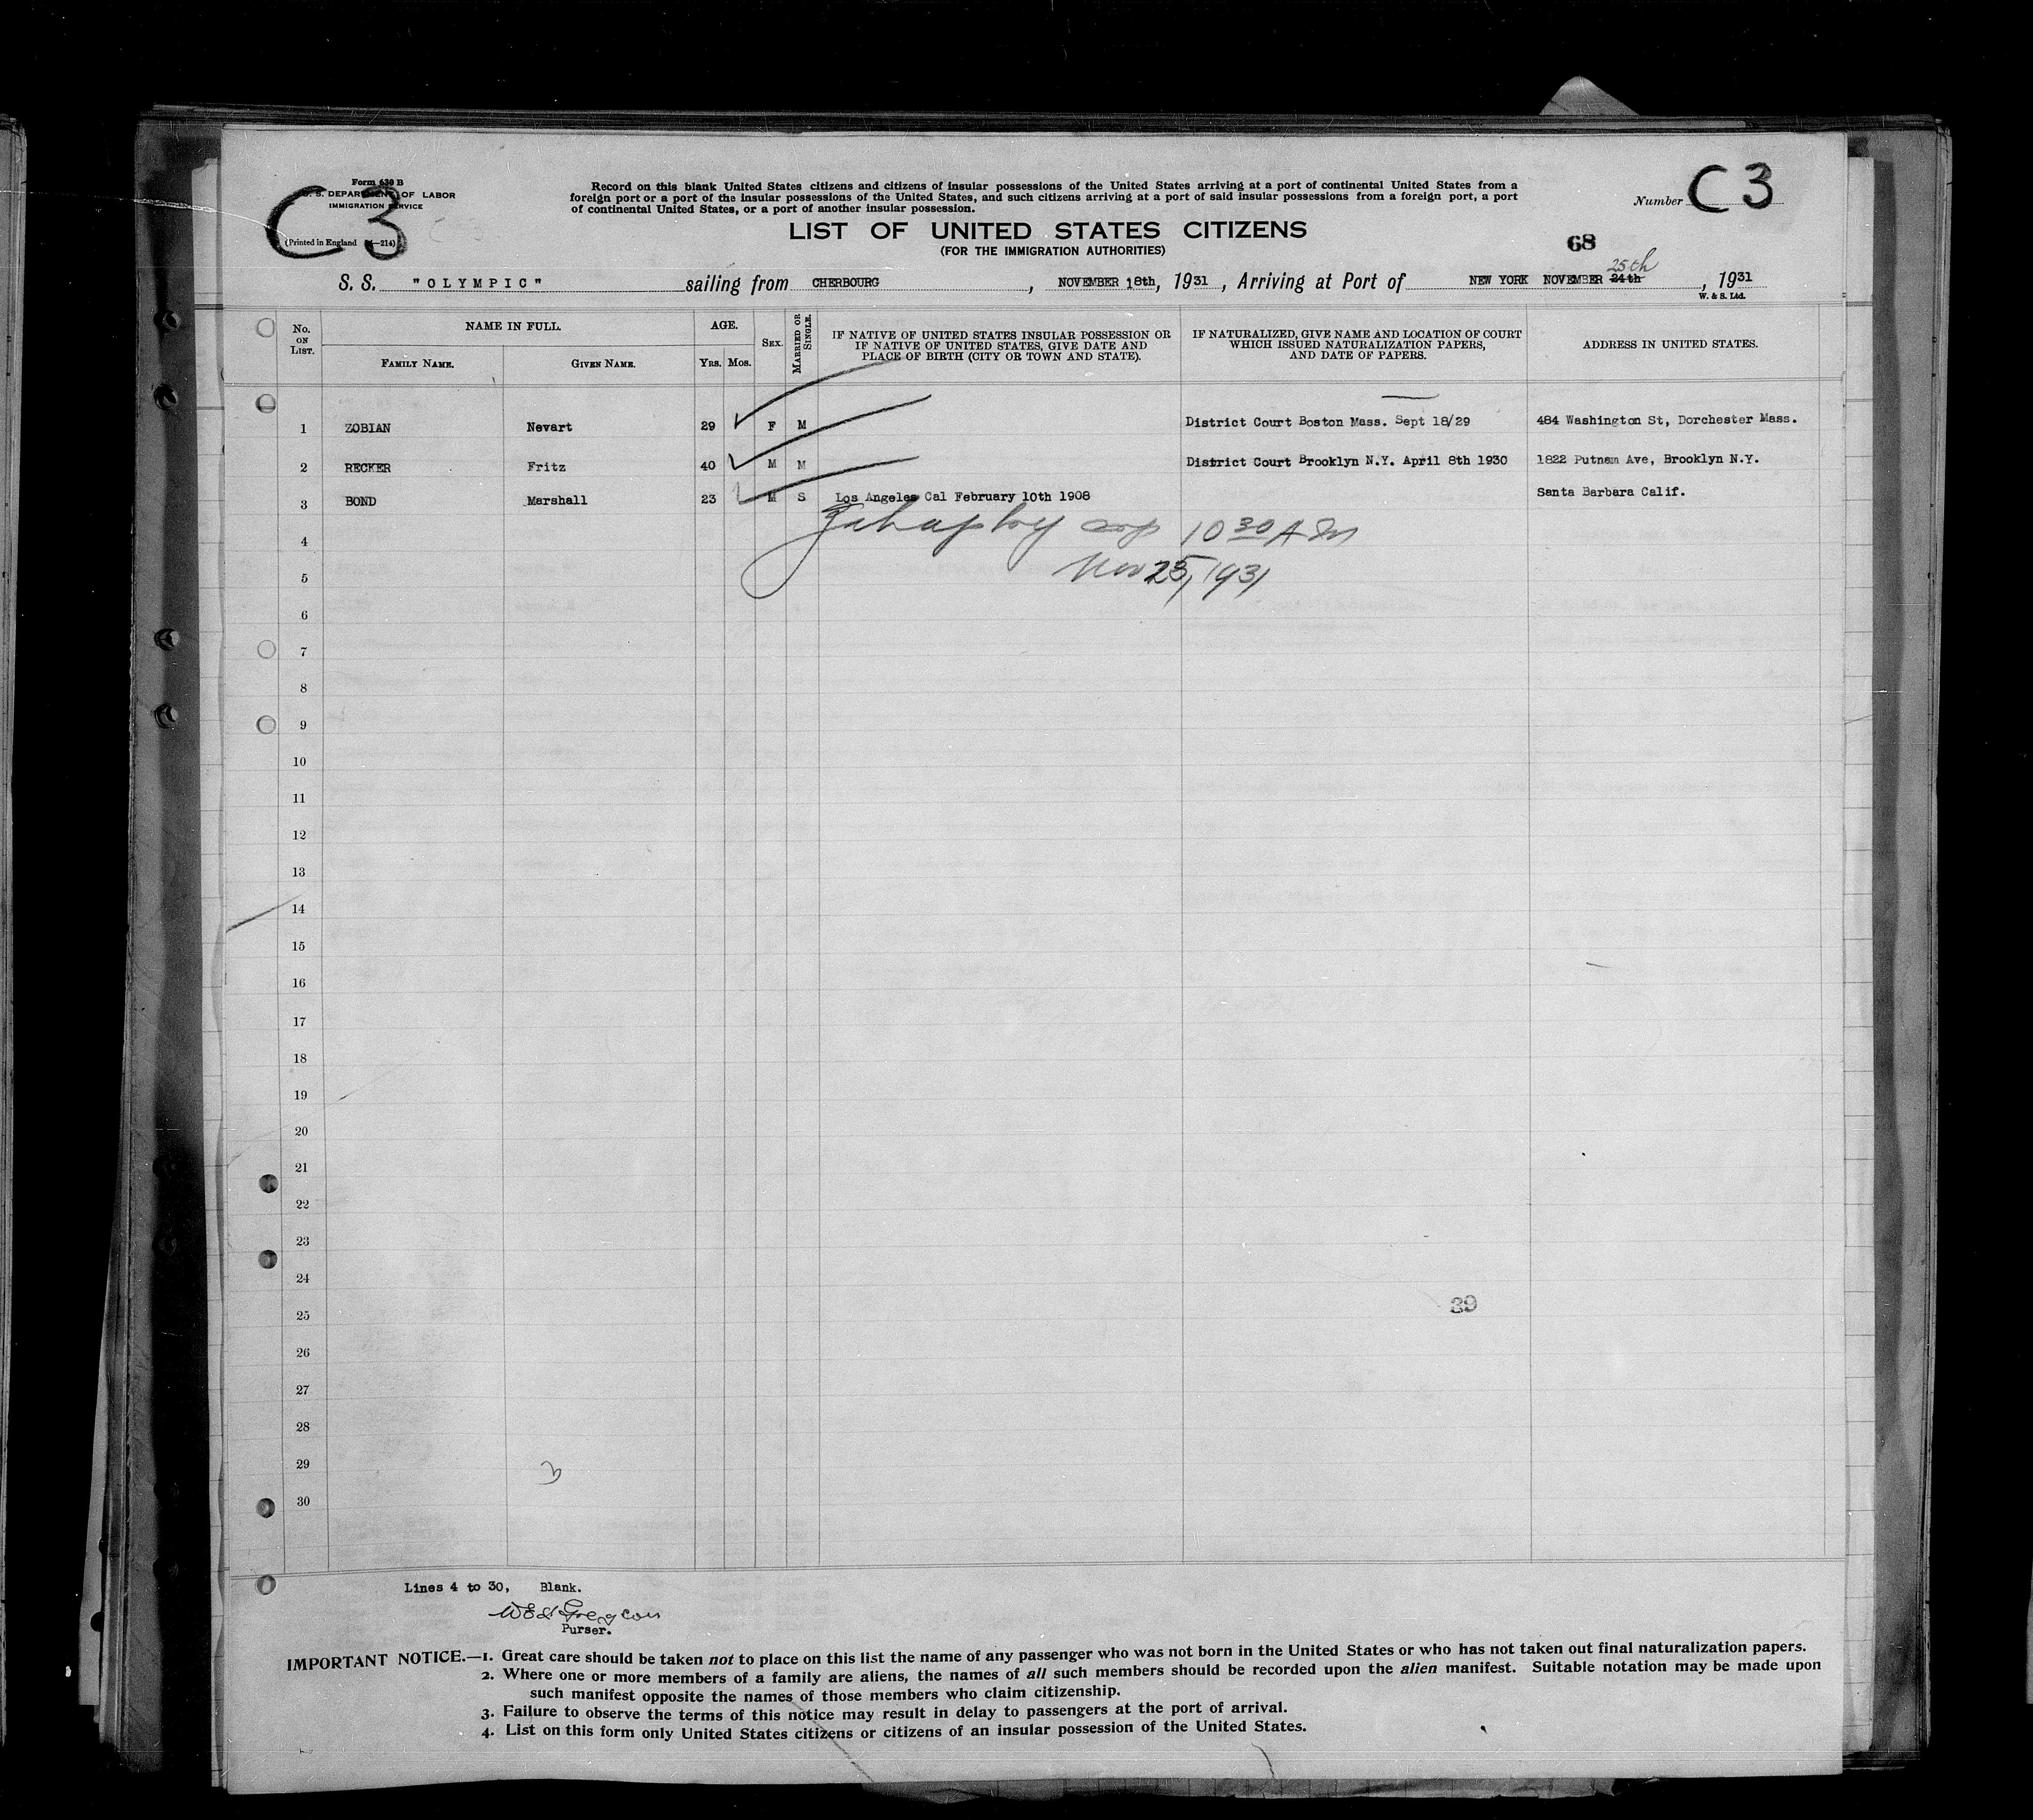 Form 630 B
U. S. DEPARTMENT OF LABOR
IMMIGRATION SERVICE
(Printed in England
C 3
Record on this blank United States citizens and citizens of insular possessions of the United States arriving at a port of continental United States from a
foreign port or a port of the insular possessions of the United States, and such citizens arriving at a port of said insular possessions from a foreign port, a port
of continental United States, or a port of another insular possession.
Number C 3
LIST OF UNITED STATES CITIZENS
(FOR THE IMMIGRATION AUTHORITIES)
68
25th
S. S. "OLYMPIC" sailing from CHERBOURG, NOVEMBER 18th, 1931, Arriving at Port of NEW YORK NOVEMBER 24th, 1931
W. & S. Ltd.
No. ON LIST. NAME IN FULL. AGE. SEX. MARRIED OR SINGLE.
FAMILY NAME. GIVEN NAME. YRS. MOS.
IF NATIVE OF UNITED STATES INSULAR POSSESSION OR
IF NATIVE OF UNITED STATES, GIVE DATE AND
PLACE OF BIRTH (CITY OR TOWN AND STATE).
IF NATURALIZED, GIVE NAME AND LOCATION OF COURT
WHICH ISSUED NATURALIZATION PAPERS,
AND DATE OF PAPERS.
ADDRESS IN UNITED STATES.
1 ZOBIAN Nevart 29 F M District Court Boston Mass. Sept 18/29 484 Washington St, Dorchester Mass.
2 RECKER Fritz 40 M M District Court Brooklyn N.Y. April 8th 1930 1822 Putnam Ave, Brooklyn N.Y.
3 BOND Marshall 23 M S Los Angeles Cal February 10th 1908 Santa Barbara Calif.
4 10 30 A M
5 Nov 25, 1931
6
7
8
9
10
11
12
13
14
15
16
17
18
19
20
21
22
23
24
25 39
26
27
28
29 3
30
Lines 4 to 30, Blank.
Purser.
IMPORTANT NOTICE.—1. Great care should be taken not to place on this list the name of any passenger who was not born in the United States or who has not taken out final naturalization papers.
2. Where one or more members of a family are aliens, the names of all such members should be recorded upon the alien manifest. Suitable notation may be made upon
such manifest opposite the names of those members who claim citizenship.
3. Failure to observe the terms of this notice may result in delay to passengers at the port of arrival.
4. List on this form only United States citizens or citizens of an insular possession of the United States.